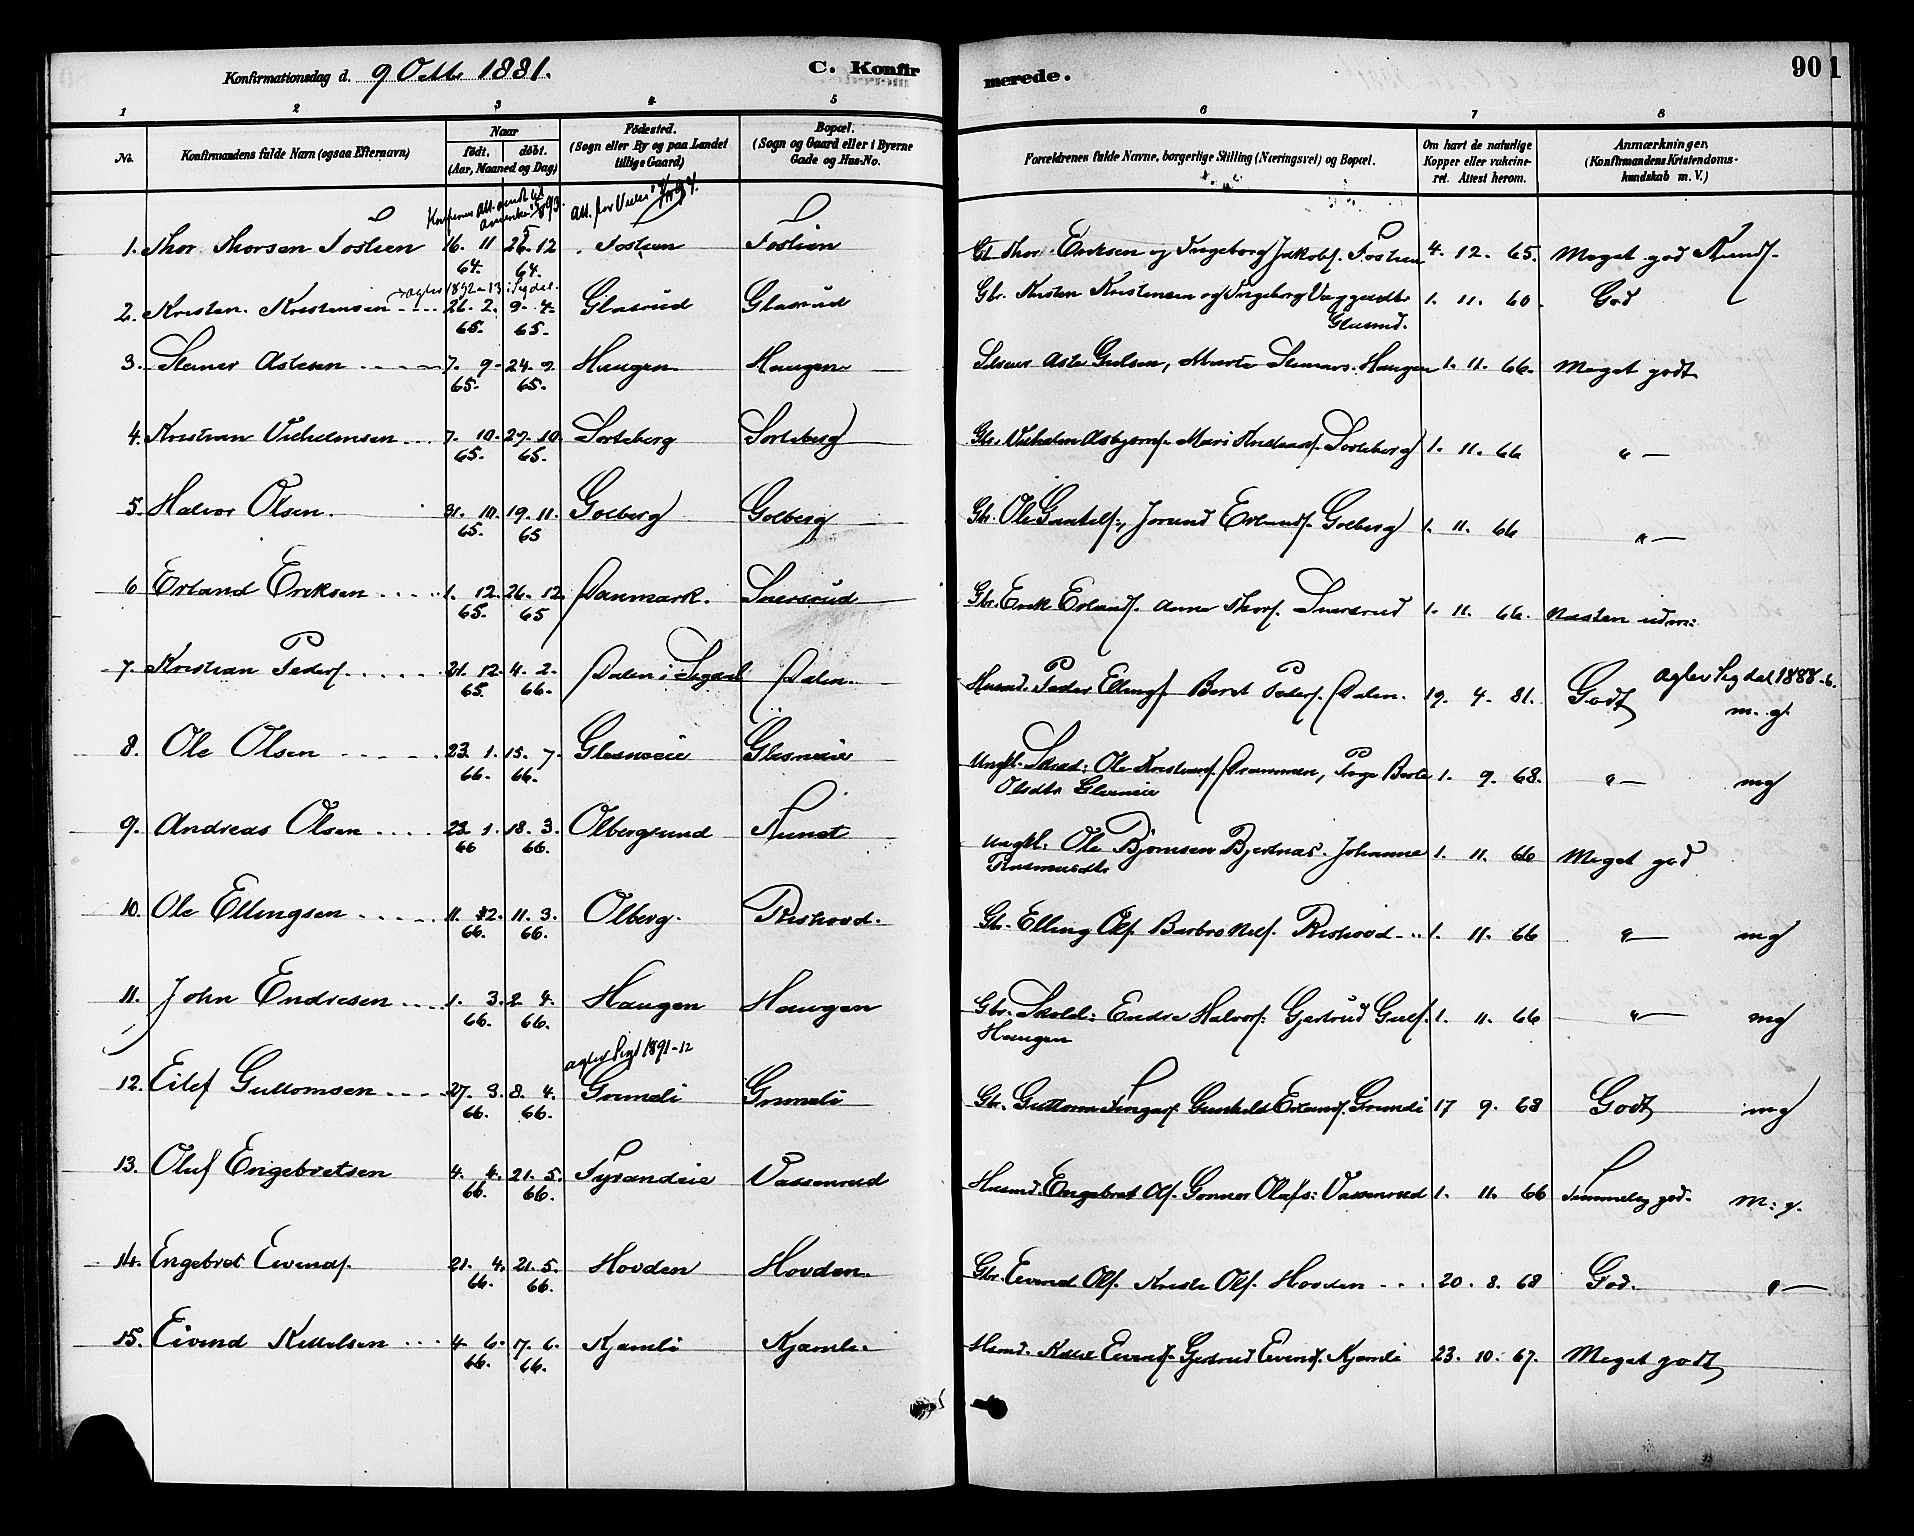 Konfirmationsdag d. 9 Octbr 1881. C. Konfirmerede. 90 1
1 2 3 4 5 6 7 8
No. Konfirmandens fulde Navn (ogsaa Efternavn) Naar født. døbt. (Aar, Maaned og Dag) Fødested. (Sogn eller By og paa Landet tillige Gaard) Bopæl. (Sogn og Gaard eller i Byerne Gade og Hus-No. Forældrenes fulde Navne, borgerlige Stilling (Næringsvei) og Bopæl. Om havt de naturlige Kopper eller vakcineret. Attest herom. Anmærkninger. (Konfirmandens Kristendomskundskab m. V.)
1. Thor Thorsen Tostien 16. 11 64. 26. 12 64. Tostien Tostien Thor Eriksen og Ingeborg Jakobs. Tostien 4. 12. 65. Meget god Kunds.
2. Kristen Kristensen 26. 2. 65. 9. 4. 65. Glasrud Glasrud Gbr. Kristen Kristensen og Ingeborg Glasrud. 1. 11. 60. God
3. Steiner Astesen 7. 9. 65. 24. 9. 65. Haugen Haugen Aste Gulsen, Marte Steinars. Haugen 1. 11. 66. Meget godt
4. Kristian Vilhelmsen 7. 10. 65. 29. 10. 65. Sorteberg Sorteberg Gbr. Vilhelm Asbjørns. Mari Sorteberg 1. 11. 66 " —
5. Halvor Olsen. 31. 10. 65. 19. 11. 65 Golberg Golberg Gbr. Ole Jorund Erlands. Golberg 1. 11. 66 " —
6 Erland Eriksen 1. 12. 65. 26. 12. 65 Danmark. Snersrud Gbr. Erik Erlands. Anne Thors. Snersrud 1. 11. 66. Næsten udm:
7. Kristian Peders. 21. 12. 65. 4. 2. 66. Dalen i Sigdal Dalen. Husmd. Peder Ellings. Berit Peders. Dalen. 19. 4. 81. Godt aglev Sigdal 1888-6. m. g.
8. Ole Olsen 23. 1. 66. 15. 7. 66. Glesneeie Glesneeie Ungkl. Ole Kristians. Drammen, Pige Berte Olsdtr. 1. 9. 68. " — mg
9. Andreas Olsen 23. 1. 66 18. 3. 66. Olbergsund Ungkl. Ole Bjørnsen Bjertnæs. Johanne Rasmusdtr 1. 11. 66 Meget god
10. Ole Ellingsen 11. 2. 66. 11. 3. 66. Olberg. Rishovd. Gbr. Elling Ols. Barbro Nils. Rishovd 1. 11. 66 " — mg
11. John Endresen 1. 3. 66. 2 4. 66. Haugen Haugen Gbr. Endre Halvors: Gjertrud Guls. Haugen 1. 11. 66 " — mg
aglev Sigd 1891-12
12. Eilef Guttormsen 27. 3. 66. 8. 4. 66. Grimeli Grimeli Gbr. Guttorm Gunhild Erlands. Grimeli 17 9. 68 Godt mg
13. Oluf Engebretsen 4. 4. 66. 21. 5. 66. Vassenrud Husmd. Engebret Ols. Gonnor Olafs: Vassenrud 1. 11. 66 Temmelig god. m: g.
14. Engebret Eivends. 21. 4. 66. 21. 5. 66. Hovden Hovden Gbr. Eivend Ols. Kirsti Ols. Hovden 20. 8. 68 God. " —
15. Eivend Kittelsen 4 6. 66. 17. 6. 66. Kjømli Kjømli Husmd. Kittel Eivends. Gjertrud Eivends. Kjømli 23. 10. 67. Meget godt